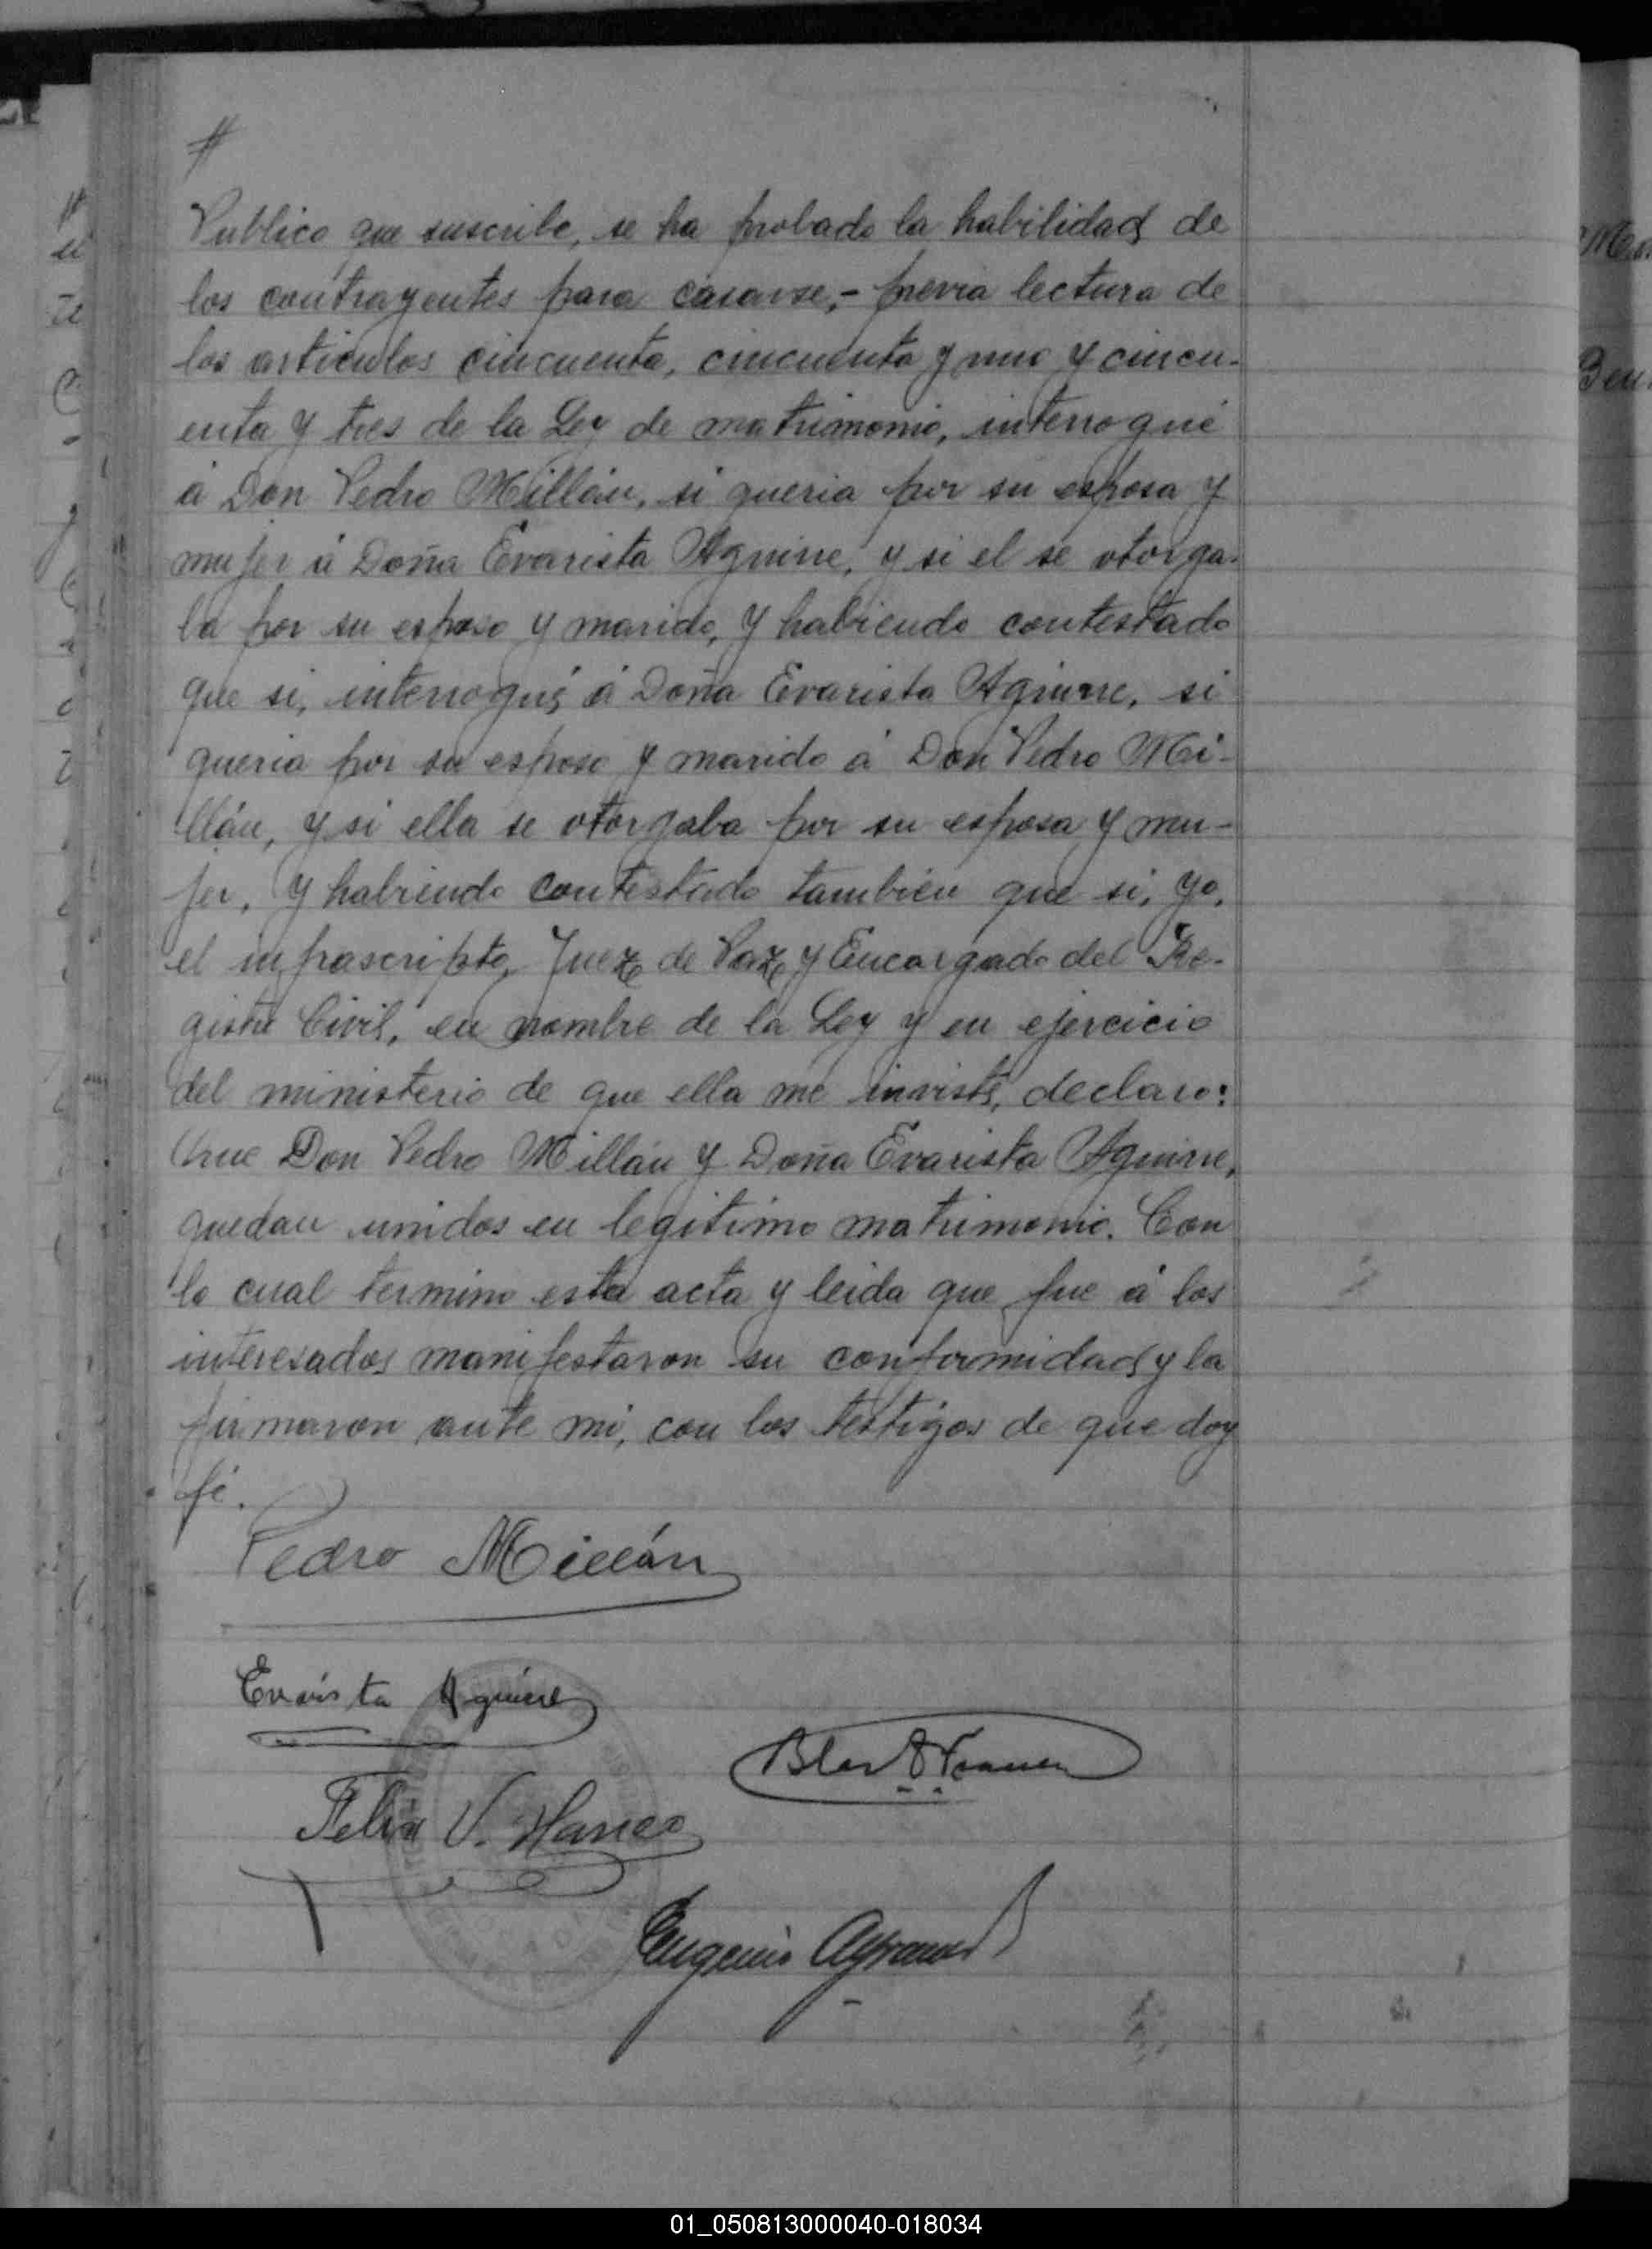 #
Publico que suscribe, se ha probado la habilidad de
los contrayentes para casarse,- previa lectura de
los articulos cincuenta, cincuenta y uno y cincu-
enta y tres de la Ley de matrimonio, interrogué
á Don Pedro Millán, si queria por su esposa y
mujer á Doña Evarista Aguirre, y si el se otorga-
ba por su esposo y marido, y habiendo contestado
que si, interrogué á Doña Evarista Aguirre, si
queria por su esposo y marido á Don Pedro Mi-
llán, y si ella se otorgaba por su esposa y mu-
jer, y habiendo contestado tambien que si, yo,
el infrascripto, Juez de Paz y Encargado del Re-
gistro Civil, en nombre de la Ley y en ejercicio
del ministerio de que ella me inviste, declaro:
Que Don Pedro Millán y Doña Evarista Aguirre,
quedan unidos en legitimo matrimonio. Con
lo cual termino esta acta y leida que fue á los
interesados manifestaron su conformidad y la
firmaron ante mi, con los testigos de que doy
fé.
Pedro Millán
Evarista Aguirre
Blas
Felix V.
Eugenio
01_050813000040-018034